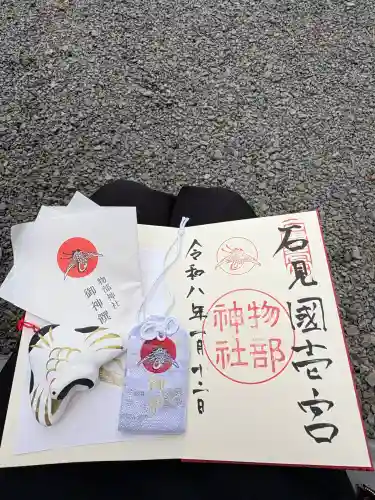 石見國壱宮
物部
神社
令和八年一月十二日
物部神社
御神饌